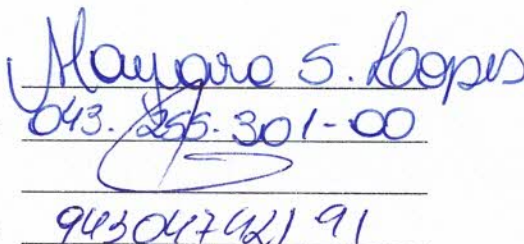 Mayara S. Lopes
043.255.301-00
94304742191